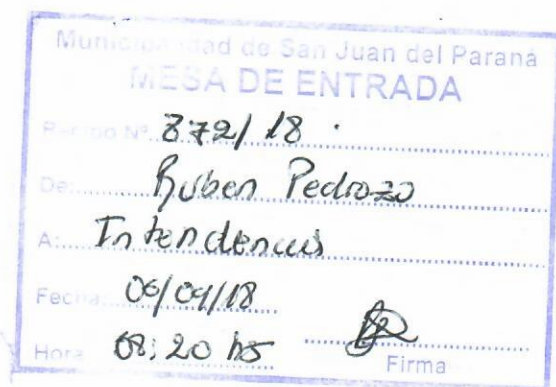 Municipalidad de San Juan del Paraná
MESA DE ENTRADA
Recibo Nº 872/18.
De: Ruben Pedrozo
A: Intendencia
Fecha: 06/09/18
Hora 08:20 hs
Firma